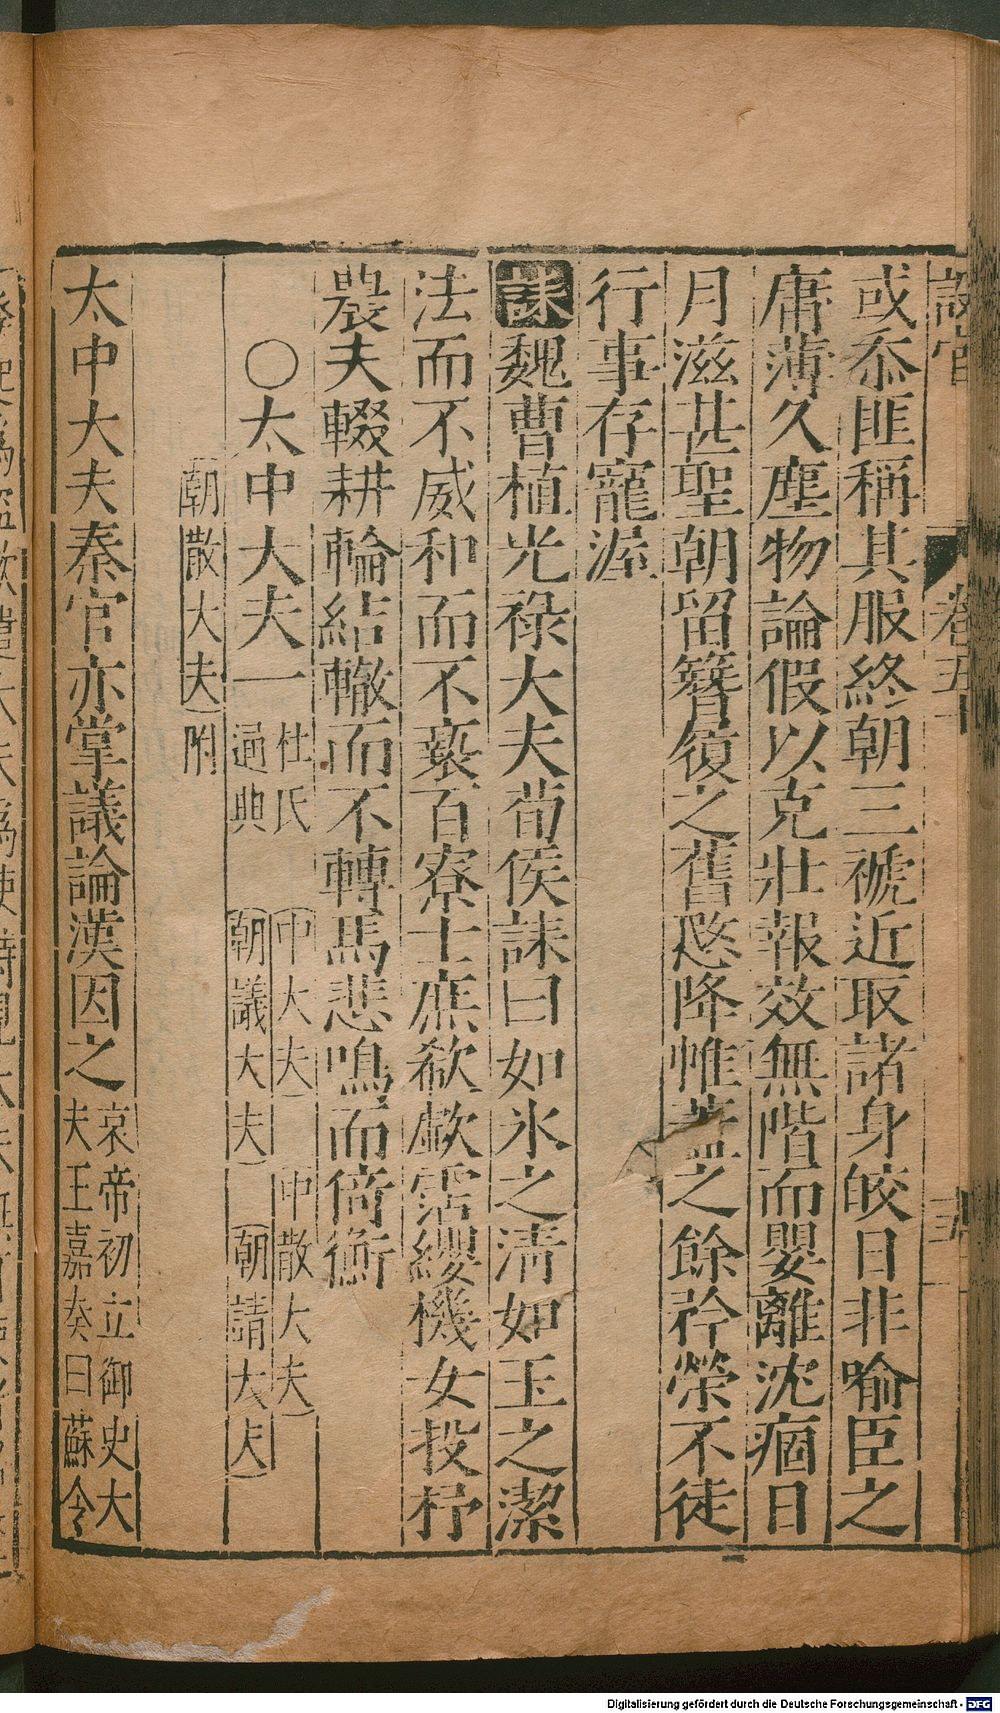 設官 卷五十 三
或忝匪稱其服終朝三褫近取諸身皎日非喻臣之
庸薄久塵物論假以克壯報效無階而嬰離沈痼日
月滋甚聖朝留簪復之舊愍降帷蓋之餘矜榮不徒
行事存寵渥
誄魏曹植光祿大夫荀侯誄曰如氷之清如玉之潔
法而不威和而不䙝百寮士庶欷歔霑纓機女投杼
農夫輟耕輪結轍而不轉馬悲鳴而倚衡
○太中大夫一 杜氏通典 中大夫 中散大夫 朝議大夫 朝請大夫
朝散大夫附
太中大夫秦官亦掌議論漢因之 哀帝初立御史大夫王嘉奏曰蘇令
Digitalisierung gefördert durch die Deutsche Forschungsgemeinschaft - DFG